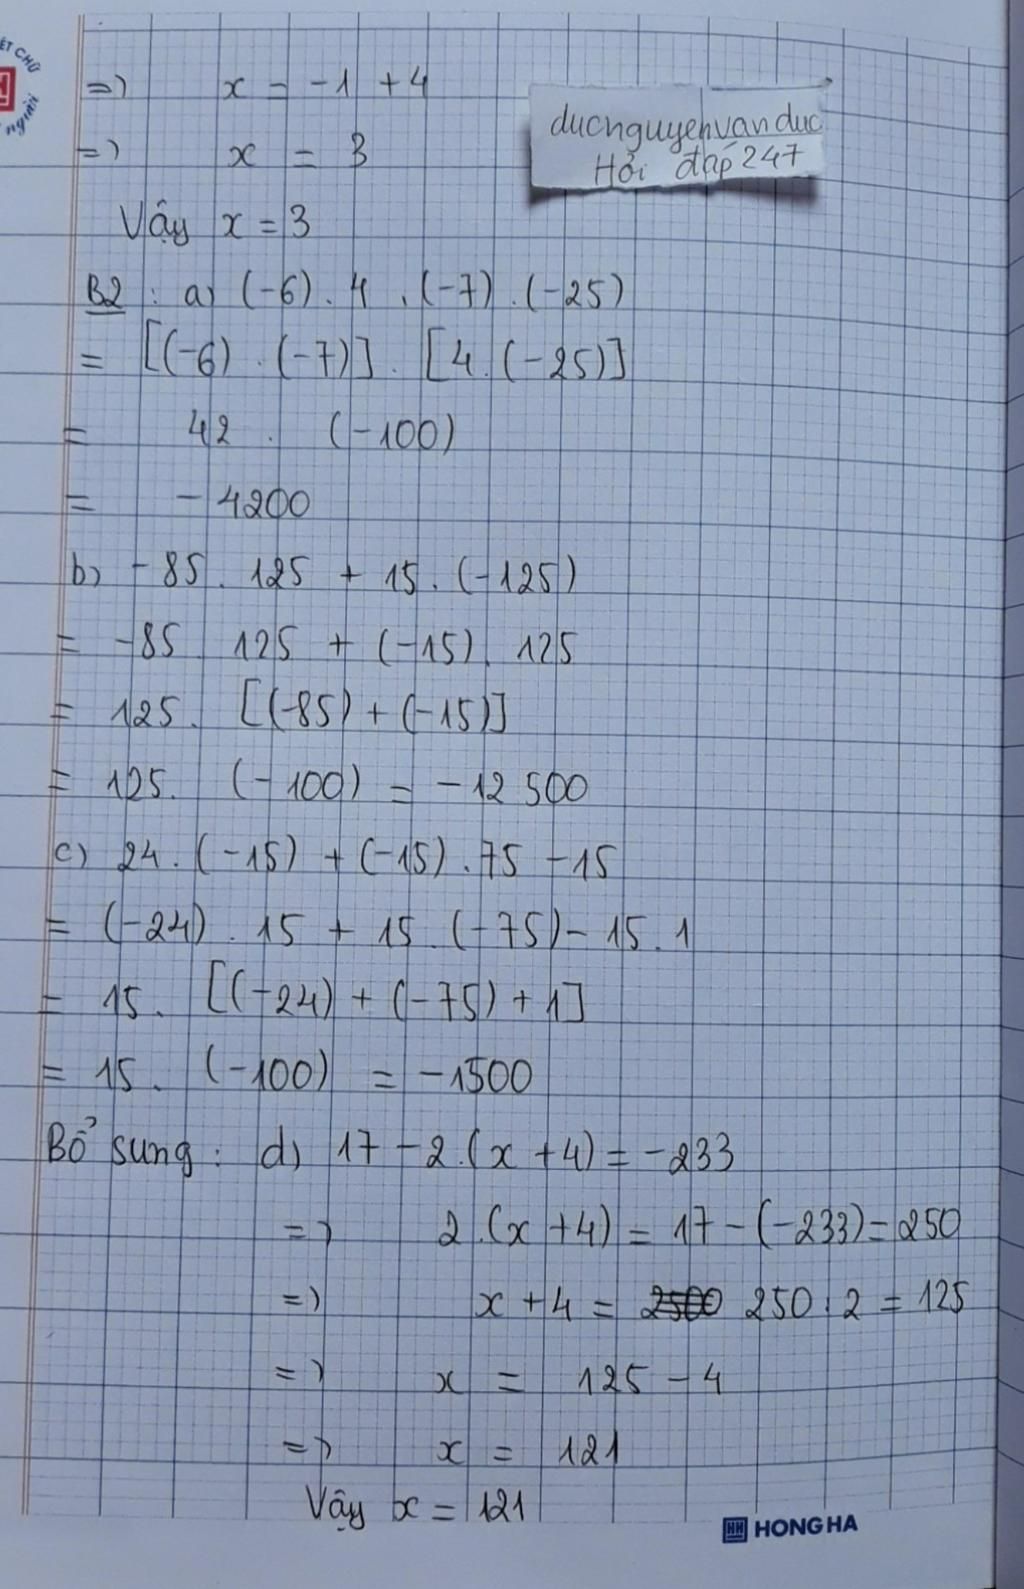 ẾT CHỮ
người
=> x = -1 + 4
ducnguyenvanduc
Hỏi đáp 247
=> x = 3
Vậy x = 3
B2 : a) (-6) . 4 . (-7) . (-25)
= [(-6) . (-7)] . [4 . (-25)]
= 42 . (-100)
= - 4200
b) -85 . 125 + 15 . (-125)
= -85 125 + (-15) . 125
= 125 . [(-85) + (-15)]
= 125 . (-100) = -12 500
c) 24 . (-15) + (-15) . 75 - 15
= (-24) . 15 + 15 . (-75) - 15 . 1
= 15 . [(-24) + (-75) + 1]
= 15 . (-100) = -1500
Bổ sung : d) 17 - 2 . (x + 4) = -233
=> 2 . (x + 4) = 17 - (-233) = 250
=> x + 4 = 2500 250 : 2 = 125
=> x = 125 - 4
=> x = 121
Vậy x = 121
HH HONG HA